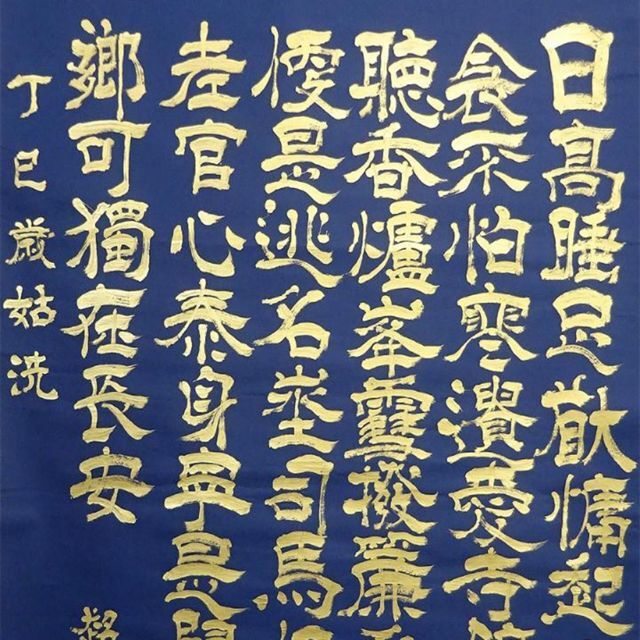 日高睡足猷慵起
衾不怕寒遺愛寺
聽香爐峯雪撥簾
便是逃名埊司馬
老官心泰身寧是
鄉可獨在長安
丁巳歲姑洗